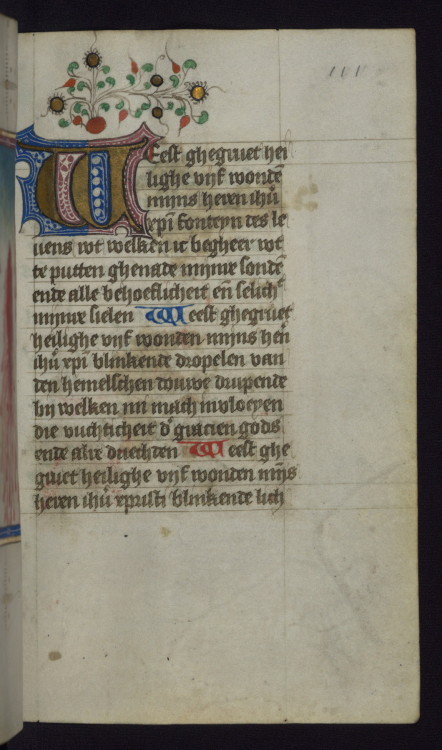 111
Weest ghegruet hei
lighe vijf wondē
mijns heren ihū
xpi fonteyn des le
uens wt welken ic begheer wt
te putten ghenade mijnre sondē
ende alle behoeflicheit eñ selich
mijnre sielen Weest ghegruet
heilighe vijf wonden mijns herē
ihū xpi blinkende dropelen van
den hemelschen douwe drupende
bij welken mi mach invloeyen
die vuchticheit d' gracien gods
ende alre duechden Weest ghe
gruet heilighe vijf wonden mijs
heren ihū xpristi blinkende lich